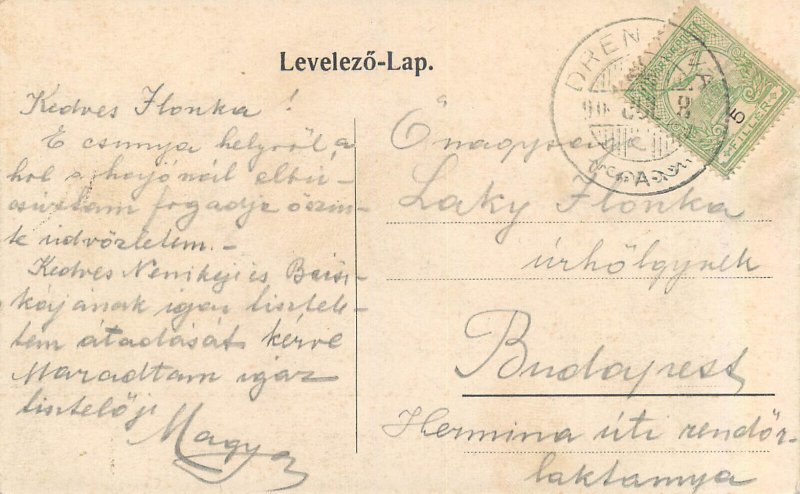 Levelező-Lap.
Kedves Ilonka!
E csunya helyről a
hol a hajónál elbu-
csuztam fogadja őszin-
te üdvözletem.-
Kedves Nénikéje és
kájának igaz tisztele-
tem átadását kérve
Maradtam igaz
tisztelője
Magya
Őnagysága
Laky Ilonka
úrhölgynek
Budapest
Hermina úti rendőr-
laktanya
DREN VA
5
FILLÉR